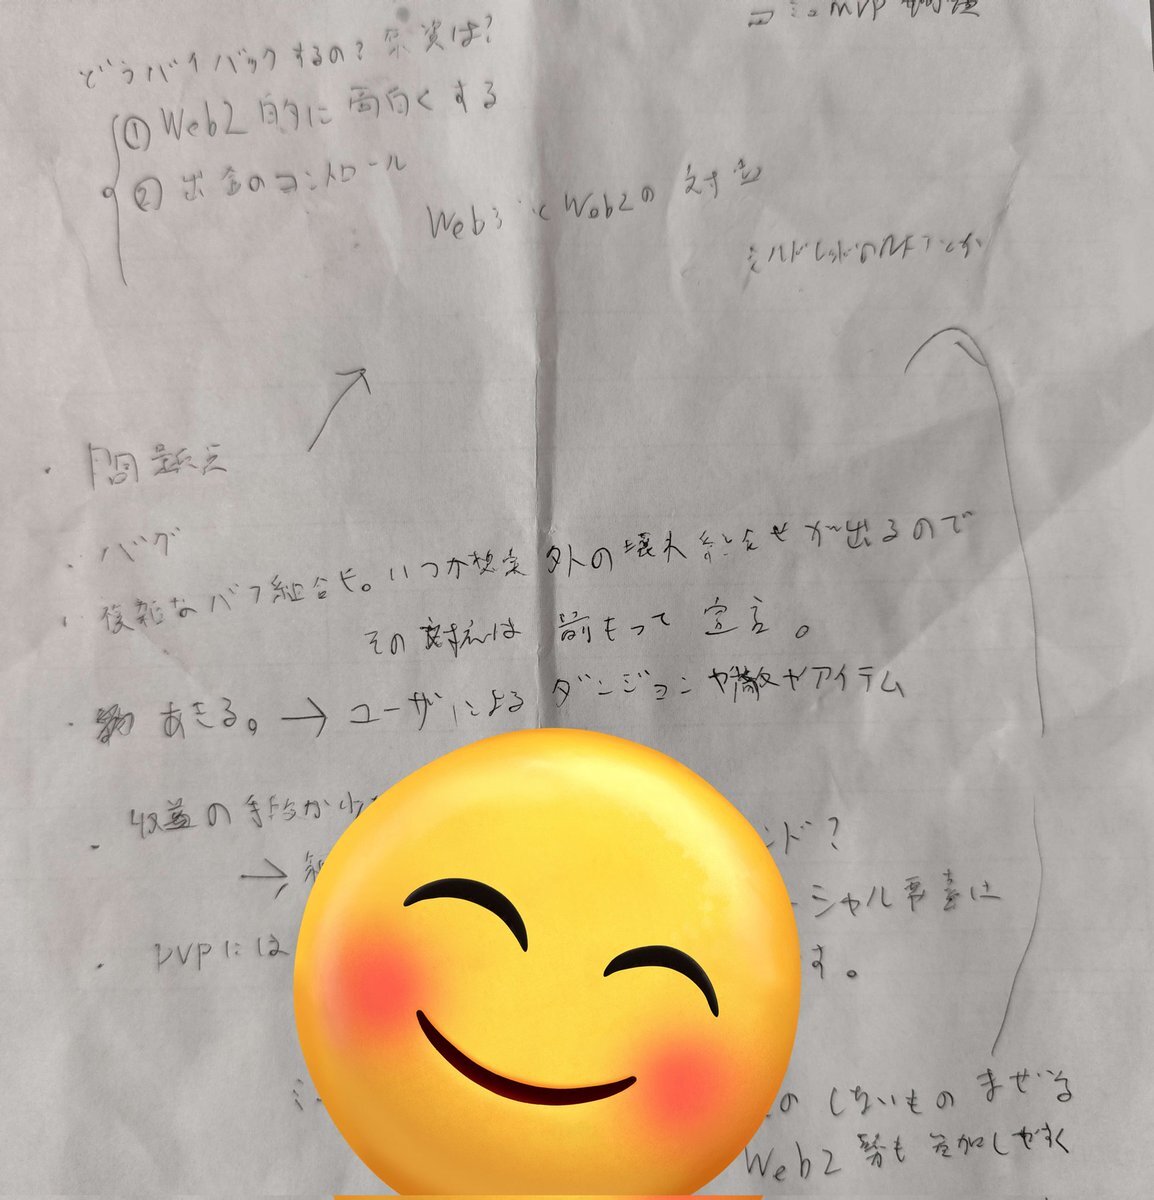 どうバイバックするの? 原資は?
① Web2的に面白くする
② 出金のコントロール
Web3とWeb2の対立
・問題点
・バグ
・複雑なバフ組合せ。いつか想定外の壊れ組合せが出るので
その対応は前もって宣言。
・あきる。→ユーザによるダンジョンや敵やアイテム
・収益の手段が
→
ンド?
・PVPには
ーシャル要素は
す。
しないものまぜる
Web2勢も参加しやすく